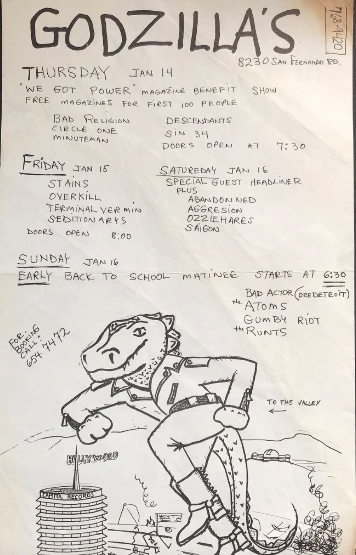 GODZILLA'S
768-9420
8230 SAN FERNANDO RD.
THURSDAY JAN 14
"WE GOT POWER" MAGAZINE BENEFIT SHOW
FREE MAGAZINES FOR FIRST 100 PEOPLE
BAD RELIGION
CIRCLE ONE
MINUTEMAN
DESCENDANTS
SIN 34
DOORS OPEN AT 7:30
FRIDAY JAN 15
STAINS
OVERKILL
TERMINAL VERMIN
SEDITIONARYS
DOORS OPEN 8:00
SATUREDAY JAN 16
SPECIAL GUEST HEADLINER
PLUS
ABANDONNED
AGGRESION
OZZIEHARES
SAIGON
SUNDAY JAN 16
EARLY BACK TO SCHOOL MATINEE STARTS AT 6:30
BAD ACTOR (OFDETROIT)
the ATOMS
GUMBY RIOT
the RUNTS
FOR
BOOKING
CALL:
654 7472
TO THE VALLEY
HOLLYWOOD
RECORDS